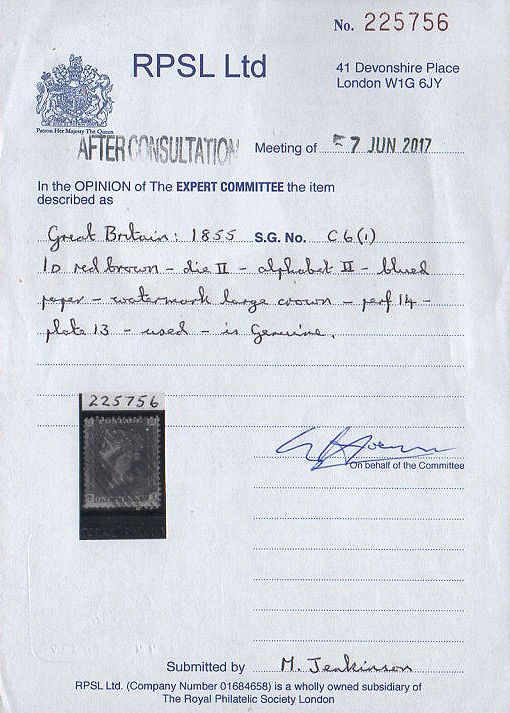 No. 225756
RPSL Ltd
41 Devonshire Place
London W1G 6JY
Patron Her Majesty The Queen
AFTER CONSULTATION
Meeting of 7 JUN 2017
In the OPINION of The EXPERT COMMITTEE the item
described as
Great Britain: 1855 S.G. No. C6(1)
1D red brown - die II - alphabet II - blued
paper - watermark large crown - perf 14 -
plate 13 - used - is Genuine.
225756
On behalf of the Committee
Submitted by M. Jenkinson
RPSL Ltd. (Company Number 01684658) is a wholly owned subsidiary of
The Royal Philatelic Society London